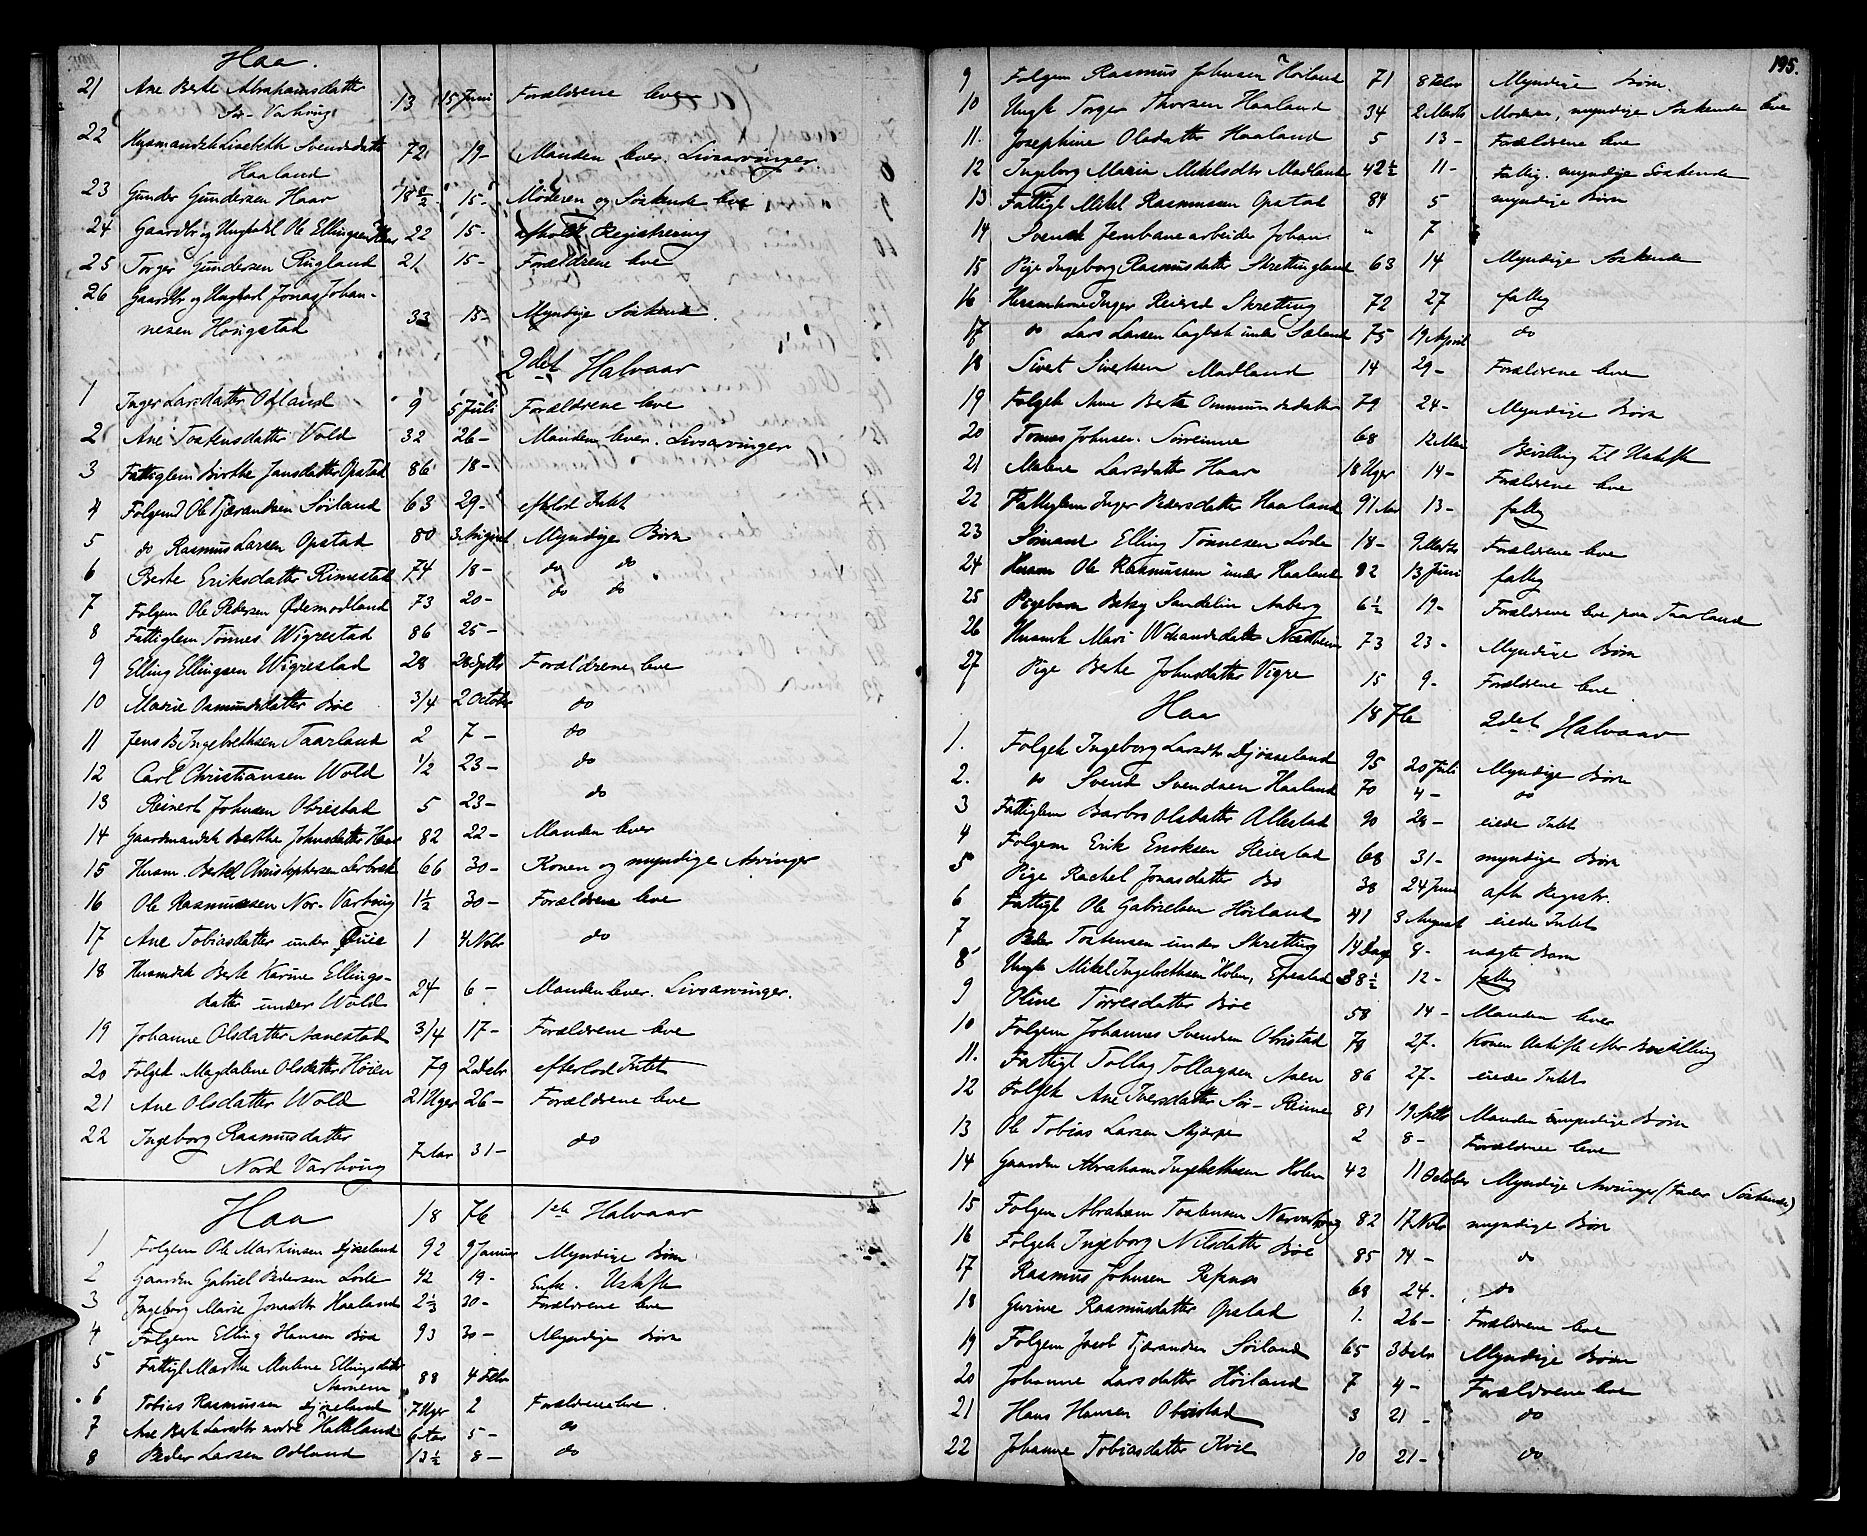 Haa.
21 Ane Berte Abrahamsdatter 13 15 Juni Forældrene leve
Sr. Varhoug
22 Husmandsk Lisebeth Svendsdatter 72 19- Manden lever. Livsarvinger
Haaland
23 Gunder Gundersen Haar 15- Moderen og Søskende leve
24 Gaardbr og Ungkarl Ole Ellingsen Haar 22 15- afholdt Registrering
25 Torger Gundersen Ringland 21 15- Forældrene leve
26 Gaardbr og Ungkarl Jonas Johan-
nesen Hougstad 33 15- Myndige Søskende
2det Halvaar
1 Inger Larsdatter Odland 9 5 Juli Forældrene leve
2 Ane Tostensdatter Vold 32 26- Manden lever. Livsarvinger
3 Fattiglem Birthe Jansdatter Opstad 86 18-
4 Folgemd Ole Tjerandsen Søiland 63 29- efterlod Intet
5 do Rasmus Larsen Opstad 80 3 August Myndige Børn
6 Berte Eriksdatter Rimestad 74 18- do do
7 Folgem Ole Pedersen Ødemodland 73 20- do do
8 Fattiglem Tønnes Wigrestad 86 25-
9 Elling Ellingsen Wigrestad 28 28 Septbr Forældrene leve
10 Marie Osmundsdatter Bøe 3/4 2 October do
11 Jens B Ingebrethsen Taarland 2 7- do
12 Carl Christiansen Wold 1/2 23- do
13 Reinert Johnsen Obrestad 5 23- do
14 Gaardmandsk Berthe Johnsdatter Haar 82 22- Manden lever
15 Husm. Bertel Christophersen 66 30- Konen og myndige Arvinger
16 Ole Rasmussen Nor-Varhoug 1½ 30- Forældrene leve
17 Ane Tobiasdatter under Qvie 1 4 Novbr do
18 Husmdsk Berte Karine Ellings-
datter under Wold 24 6- Manden lever. Livsarvinger.
19 Johanne Olsdatter Aanestad 3/4 17- Forældrene leve
20 Folgek. Magdalene Olsdatter Høien 79 2 Decbr efterlod Intet
21 Ane Olsdatter Wold 21 Uger 26- Forældrene leve
22 Ingeborg Rasmusdatter
Nord Varhoug 7 Aar 31- do
Haa 18 76 1ste Halvaar
1 Folgem Ole Martinsen Djøseland 92 9 Januar Myndige Børn
2 Gaardm Gabriel Pedersen Lode 42 19- Enke. Uskifte
3 Ingeborg Marie Jonasdtr Haaland 2⅓ 30- Forældrene leve
4 Folgem Elling Hansen Bøe 93 30- Myndige Børn
5 Fattigl Marthe Malene Ellingsdatter
88 4 Febr
6 Tobias Rasmussen Djøseland 7 Uger 2 Forældrene leve.
7 Ane Berte Larsdtr nordre Hatteland 6 Aar 5- do
8 Peder Larsen Odland 13½ 8- do
195.
9 Folgem Rasmus Johnsen Høiland 71 8 Febr Myndige Børn.
10 Ungk Torger Thorsen Haaland 34 2 Marts Moderen, myndige Søskende leve
11. Josephine Olsdatter Haaland 5 13- Forældrene leve
12 Ingeborg Maria Mikelsdtr Madland 42½ 11- Fattig. myndige Søskende
13 Fattigl Mikel Rasmussen Opstad 84 5 myndige Børn
14 Svensk Jernbanearbeider Johan " 7
15 Pige Ingeborg Rasmusdatter Skrettingland 63 14 Myndige Søskende
16 Husmkone Inger Reiersd Skretting 72 27 fattig
17 do Lars Larsen under Søland 75 19 April do
18 Sivert Sivertsen Madland 14 29- Forældrene leve
19 Folgek Anne Berte Ommundsdatter 79 24- Myndige Børn
20 Tønnes Johnsen. Sørreime 68 12 Mai Bevilling til Uskifte
21 Malene Larsdatter Haar 18 Uger 14- Forældrene leve
22 Fattiglem Inger Pedersdatter Haaland 91 Aar 13- fattig
23 Sømand Elling Tønnesen Lode 18- 9 Marts Forældrene leve
24 Husm Ole Rasmussen under Haaland 82 13 Juni fattig
25 Pigebarn Betsy Sandelin Aaberg 6½ 19- Forældrene leve paa Taarland
26 Husmk Mari Nætthein 73 23- Myndige Børn
27 Pige Berte Johnsdatter Vigre 15 9- Forældrene leve
Haa 1876 2det Halvaar
1. Folgek Ingeborg Larsdtr Djøsseland 95 20 Juli Myndige Børn
2. do Svend Svendsen Haaland 70 4- do
3 Fattiglem Barbro Olsdatter Allestad 90 28- eiede Intet
4 Folgem Erik Enoksen Reiestad 68 31- myndige Børn
5 Pige Rachel Jonasdatter Bø 38 24 Juni afh Registr.
6 Fattigl Ole Gabrielsen Høiland 41 3 August eiede Intet
7 Peder Tostensen under Skretting 14 Dage 8- uægte Barn
8 Ungk Mikel Ingebrethsen Holm, 38½ 12- fattig
9 Oline Torresdatter Bøe 58 14- Manden lever
10 Folgem Johannes Svendsen Obrestad 78 27. Konen Uskifte efter Bevilling
11. Fattigl Tollag Tollagsen Aaen 86 27- eiede Intet
12 Folgek Ane Iversdatter Sør-Reime 81 19 Septbr Manden myndige Børn
13 Ole Tobias Larsen Skjærpe 2 8- Forældrene leve
14 Gaardm Abraham Ingebrethsen Holm 42 11 October Myndige Arvinger (Fader Søskende)
15 Folgem Abraham Tostensen Norvarhoug 82 17 Novbr myndige Børn
16 Folgek Ingeborg Nilsdatter Bøe 85 14- do
17 Rasmus Johnsen Refsnes 68 24. do
18 Gurine Rasmusdatter Opstad 1. 26- Forældrene leve
19 Folgem Jacob Tjerandsen Søiland 65 3 Decbr Myndige Børn
20 Johanne Larsdatter Høiland 7 4- Forældrene leve
21 Hans Hansen Obrestad 3 21- do
22 Johanne Tobiasdatter Kvie 10 21- do